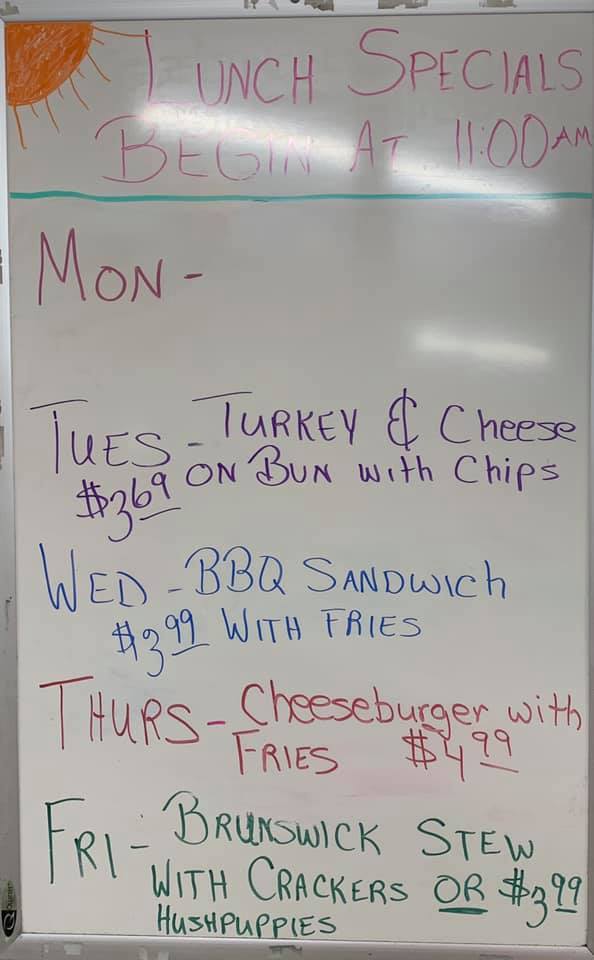 LUNCH SPECIALS
BEGIN AT 11:00 AM
MON -
TUES - TURKEY & Cheese
$3.69 ON BUN with Chips
WED - BBQ SANDWICH
$3.99 WITH FRIES
THURS - Cheeseburger with
FRIES $4.99
FRI - BRUNSWICK STEW
WITH CRACKERS OR $3.99
HUSHPUPPIES
Quartet